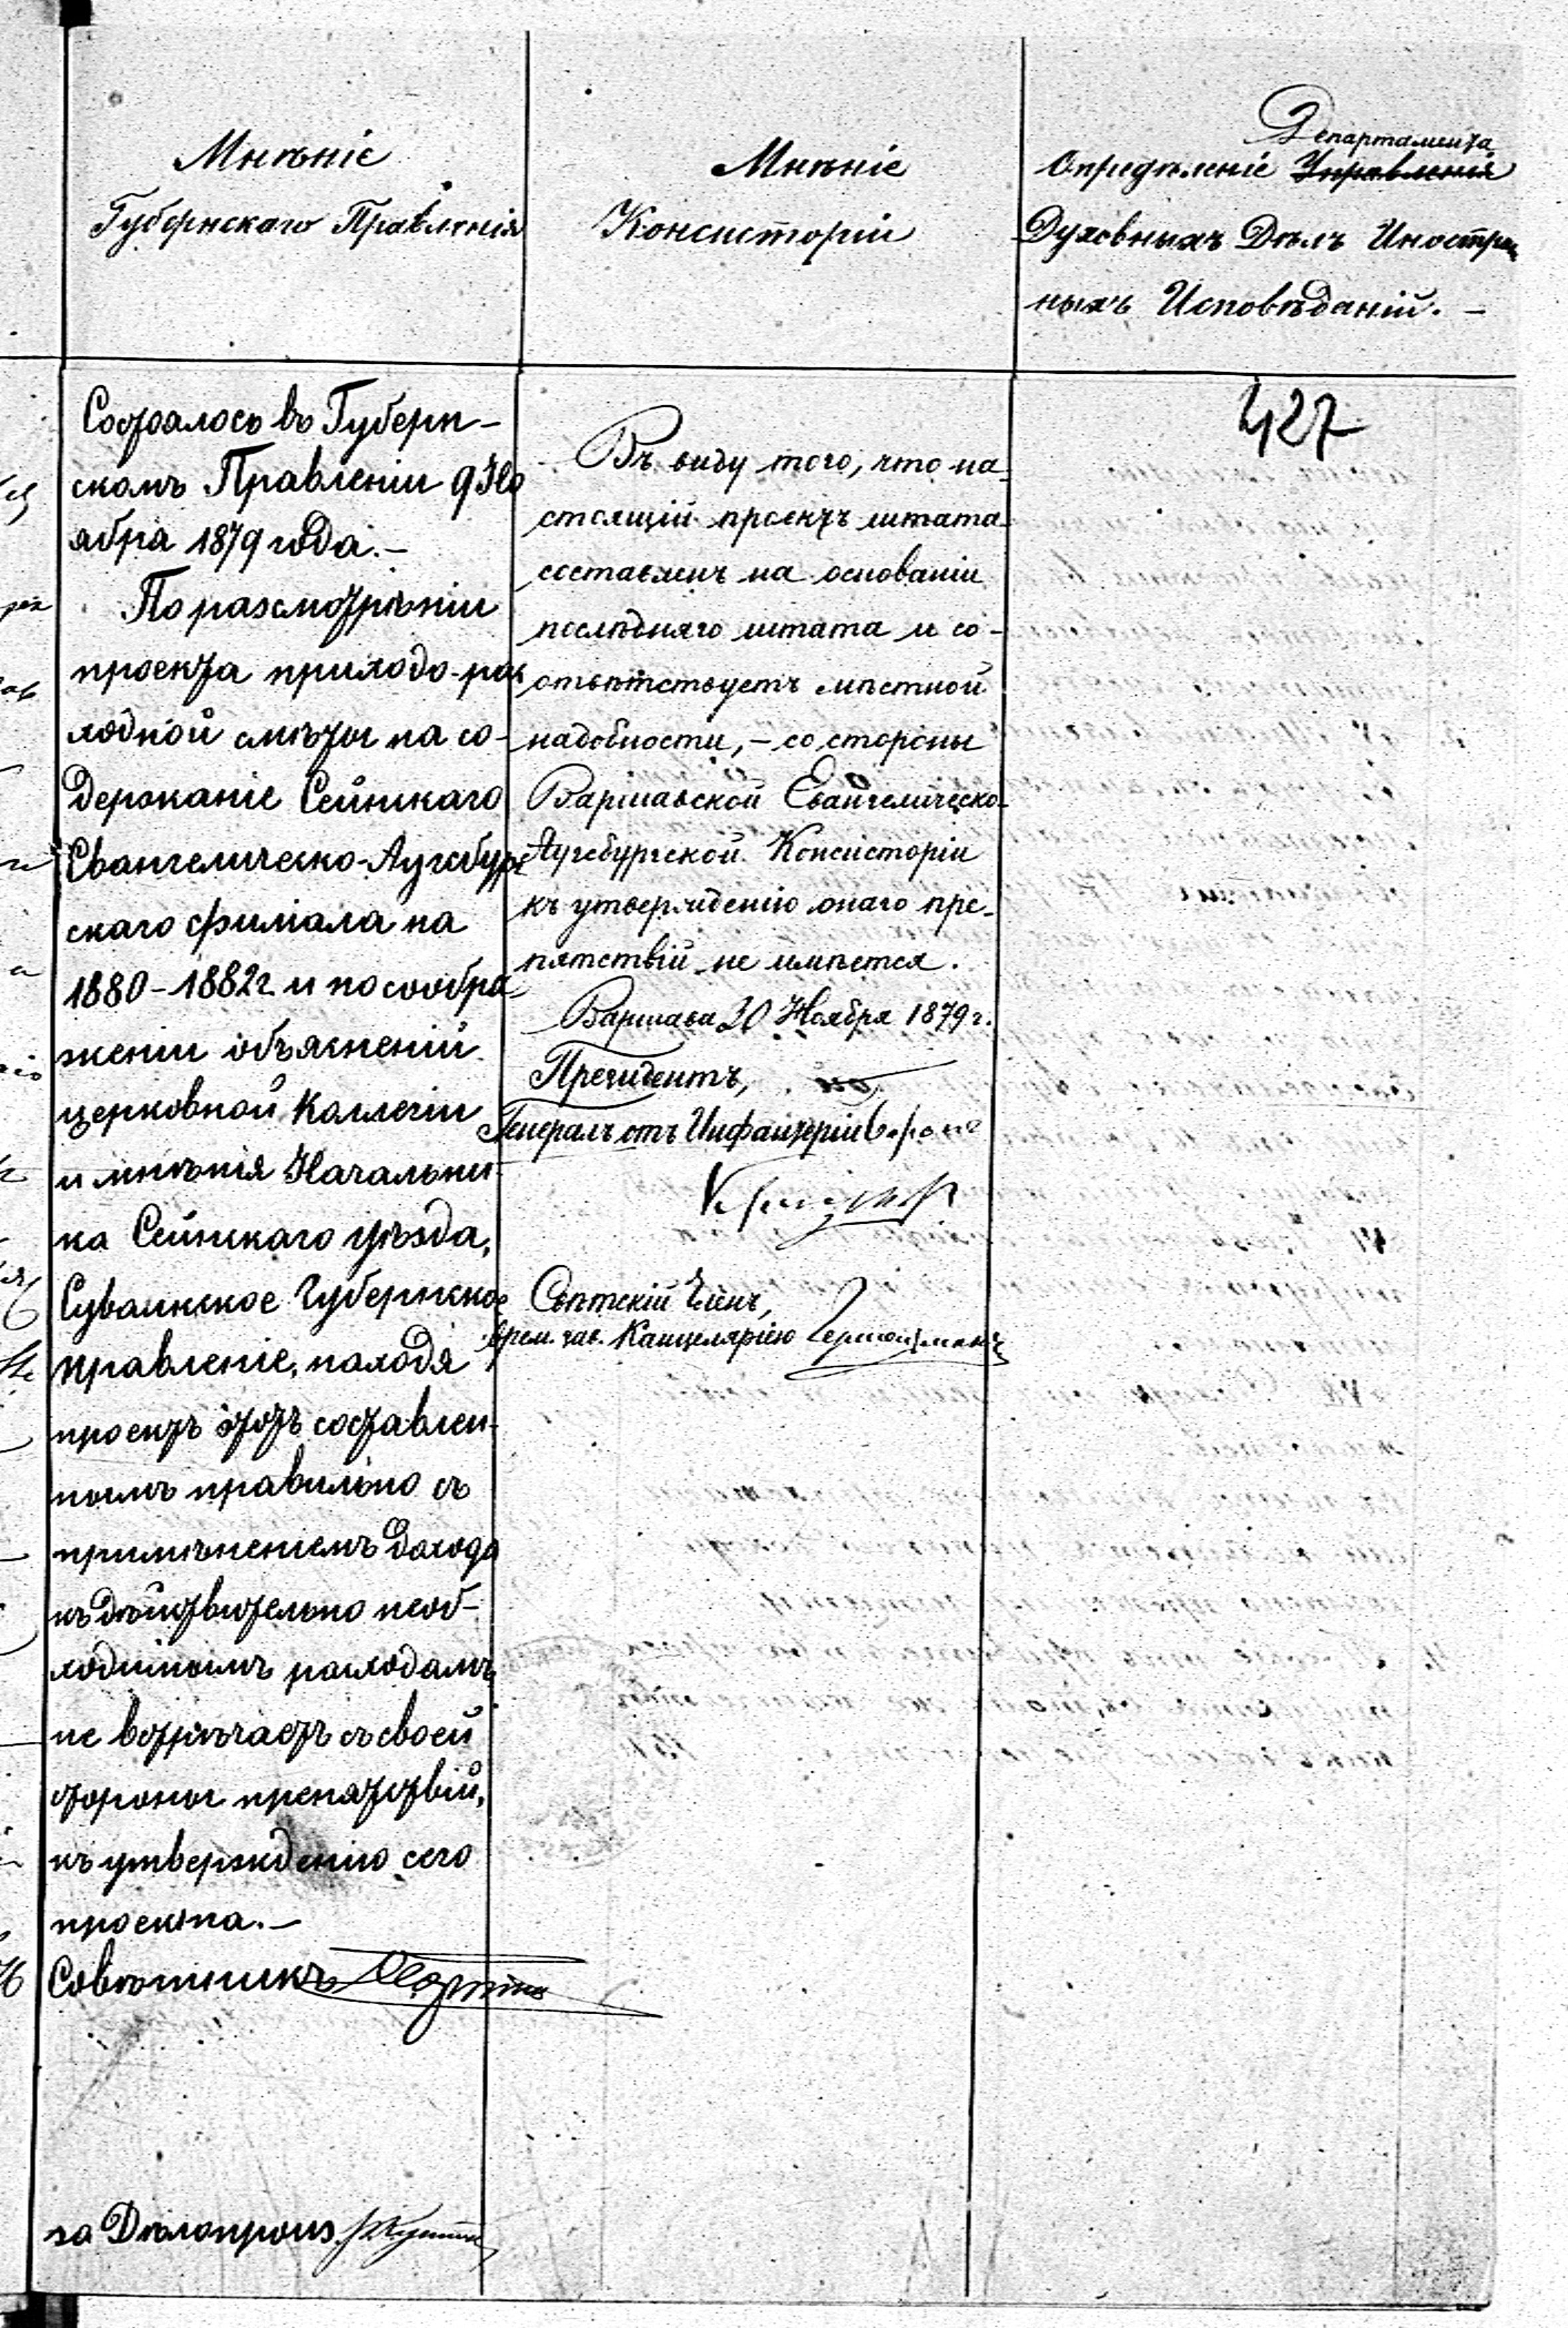 Мнѣніе
Губернскаго Правленія
Мнѣніе
Консисторіи
Департамента
Опредѣленіе Управленія
Духовныхъ Дѣлъ Иностран
ныхъ Исповѣданій. –
Состоялось въ Губерн-
скомъ Правленіи 9 Но
ября 1879 года. –
По разсмотрѣніи
проекта приходо-рас
ходной смѣты на со-
держаніе Сейнскаго
Евангелическо-Аугсбург
скаго филіала на
1880–1882 г. и по сообра-
женіи объясненій
церковной Коллегіи
и мнѣнія Начальни-
ка Сейнскаго уѣзда,
Сувалкское Губернское
правленіе, находя
проектъ этотъ составлен-
нымъ правильно съ
примѣненіемъ дохода
къ дѣйствительно необ-
ходимымъ расходамъ
не встрѣчаетъ съ своей
стороны препятствій,
къ утвержденію сего
проекта. –
Совѣтникъ
за Дѣлопроиз.
427
Въ виду того, что на-
стоящій проектъ штата
составленъ на основаніи
послѣдняго штата и со-
отвѣтствуетъ мѣстной
надобности, – со стороны
Варшавской Евангелическо-
Аугсбургской Консисторіи
къ утвержденію онаго пре-
пятствій не имѣется.
Варшава 20 Ноября 1879 г.
Президентъ,
Генералъ отъ Инфантеріи Баронъ
Свѣтскій Членъ,
врем. зав. Канцеляріею